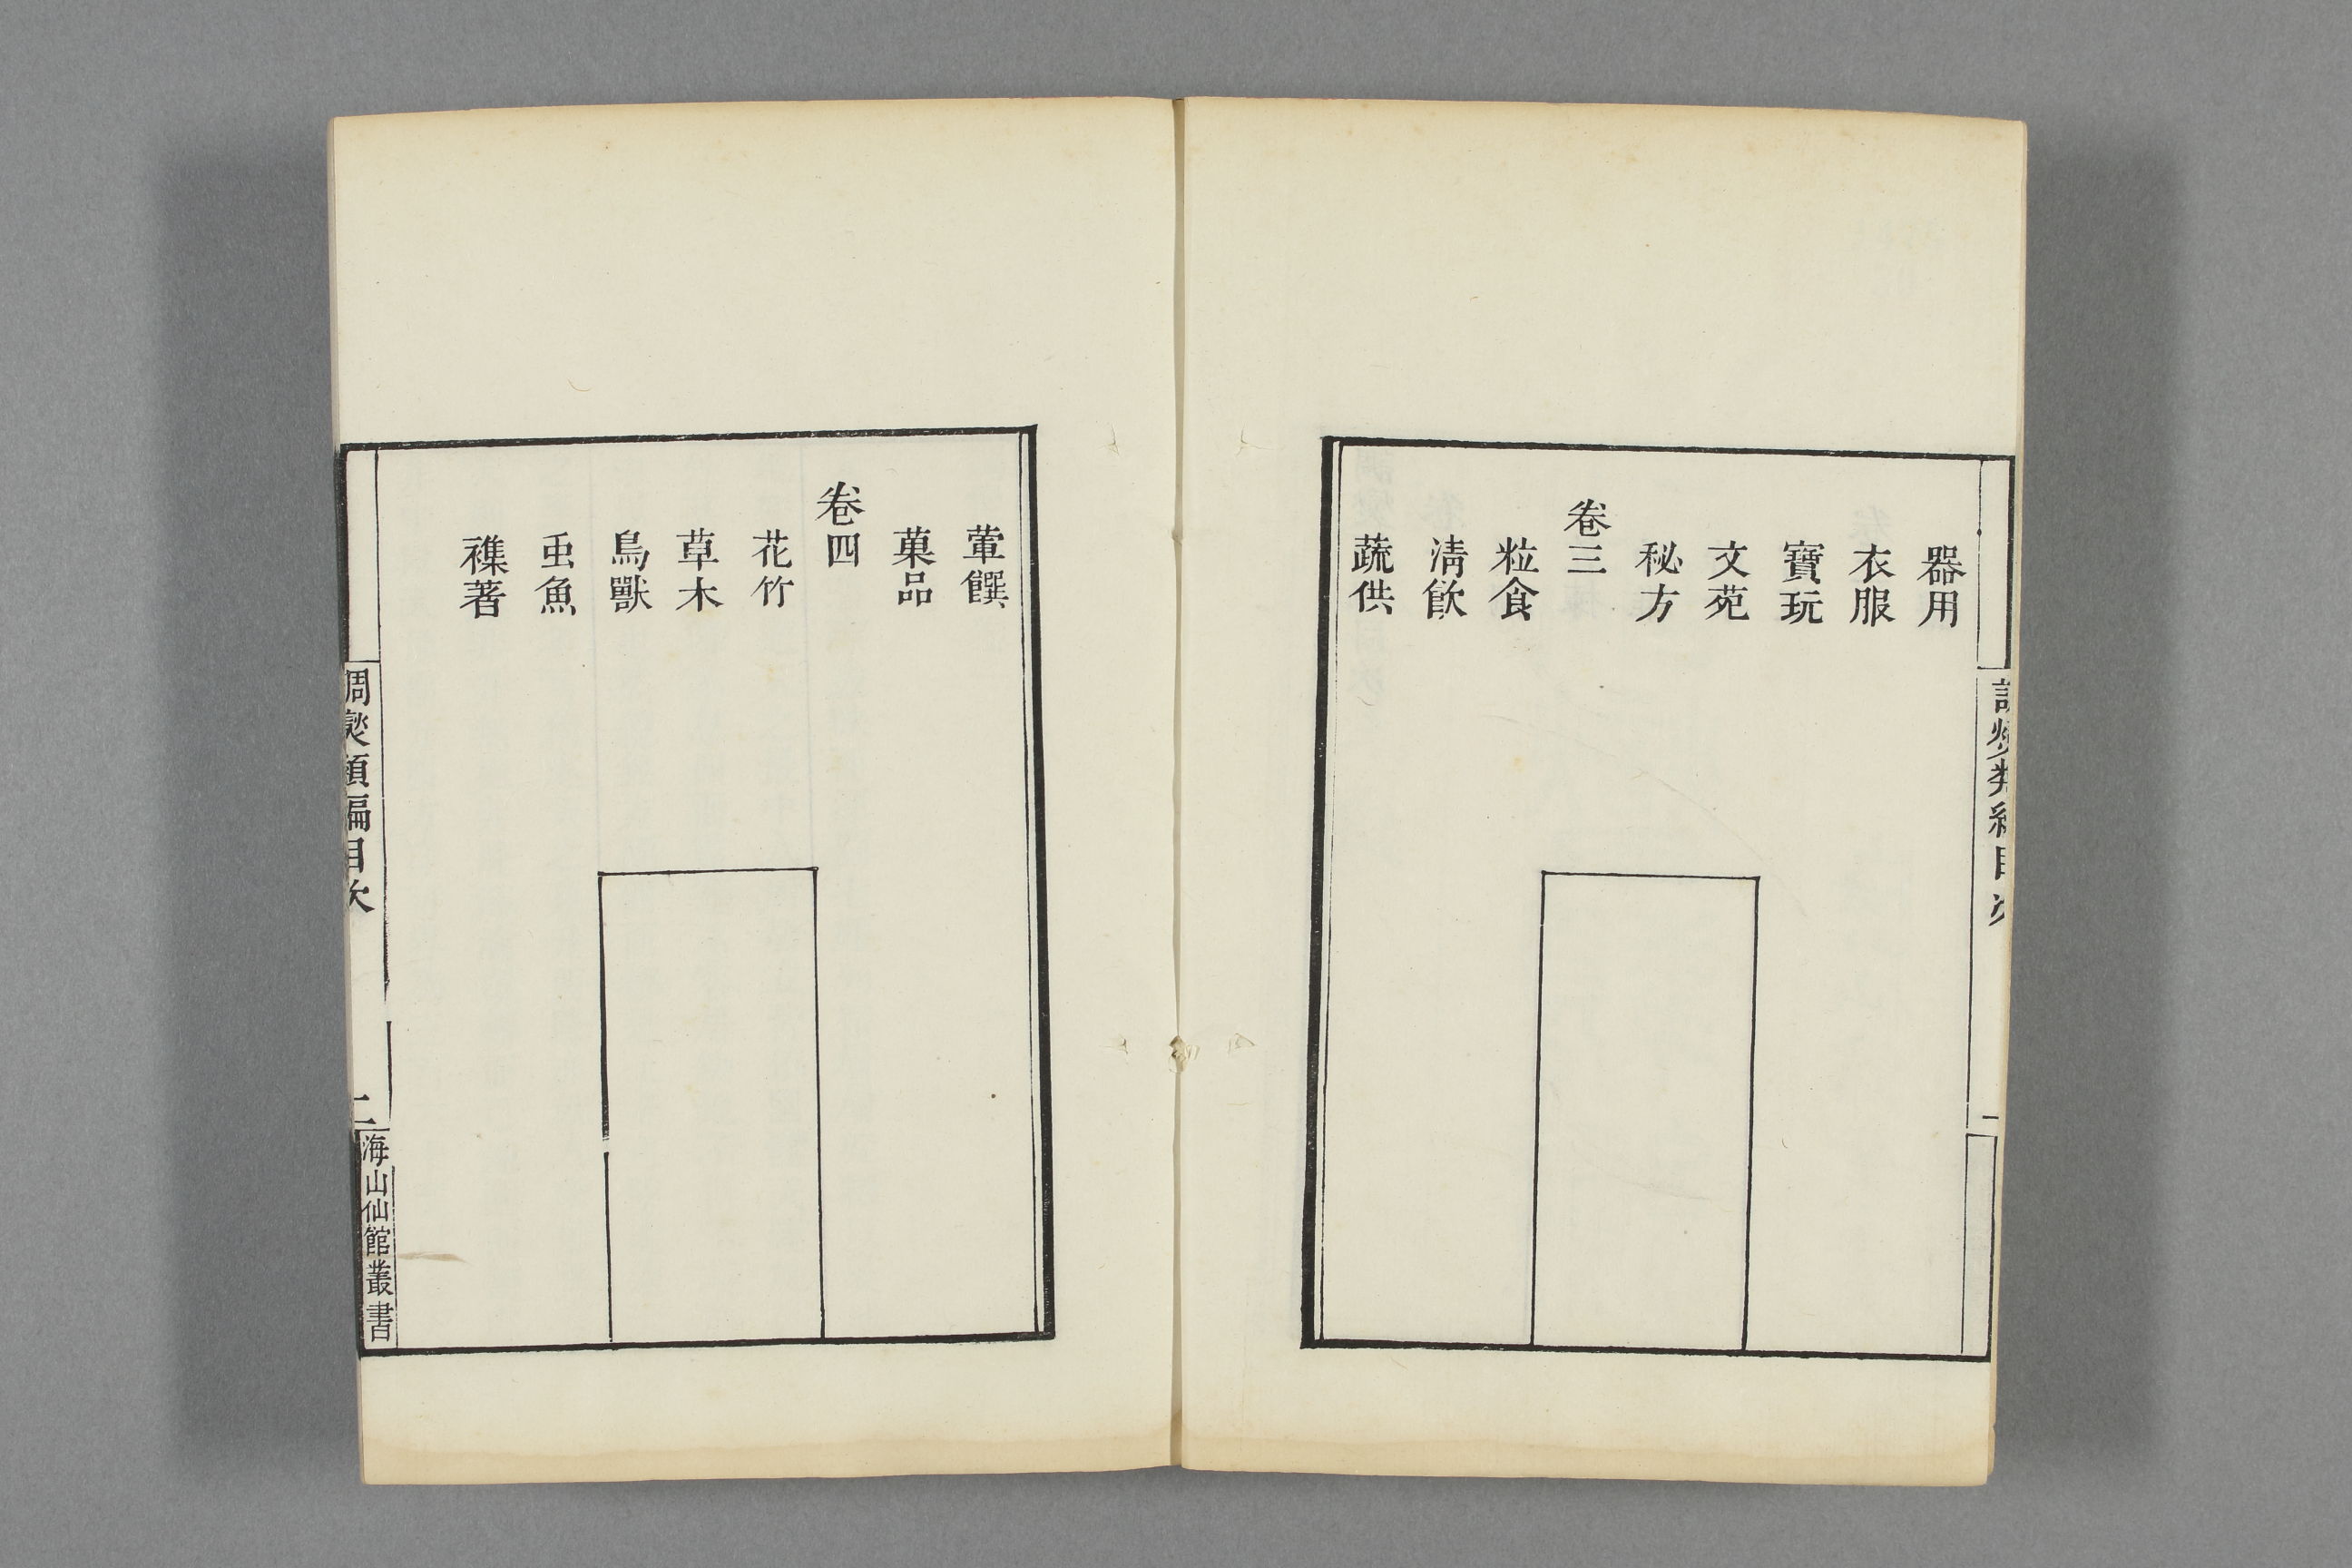 器用
衣服
寶玩
文苑
秘方
卷三
粒食
清飲
蔬供
調燮類編目次
葷饌
菓品
卷四
花竹
草木
鳥獸
虫魚
襍著
調燮類編目次
二
海山仙館叢書